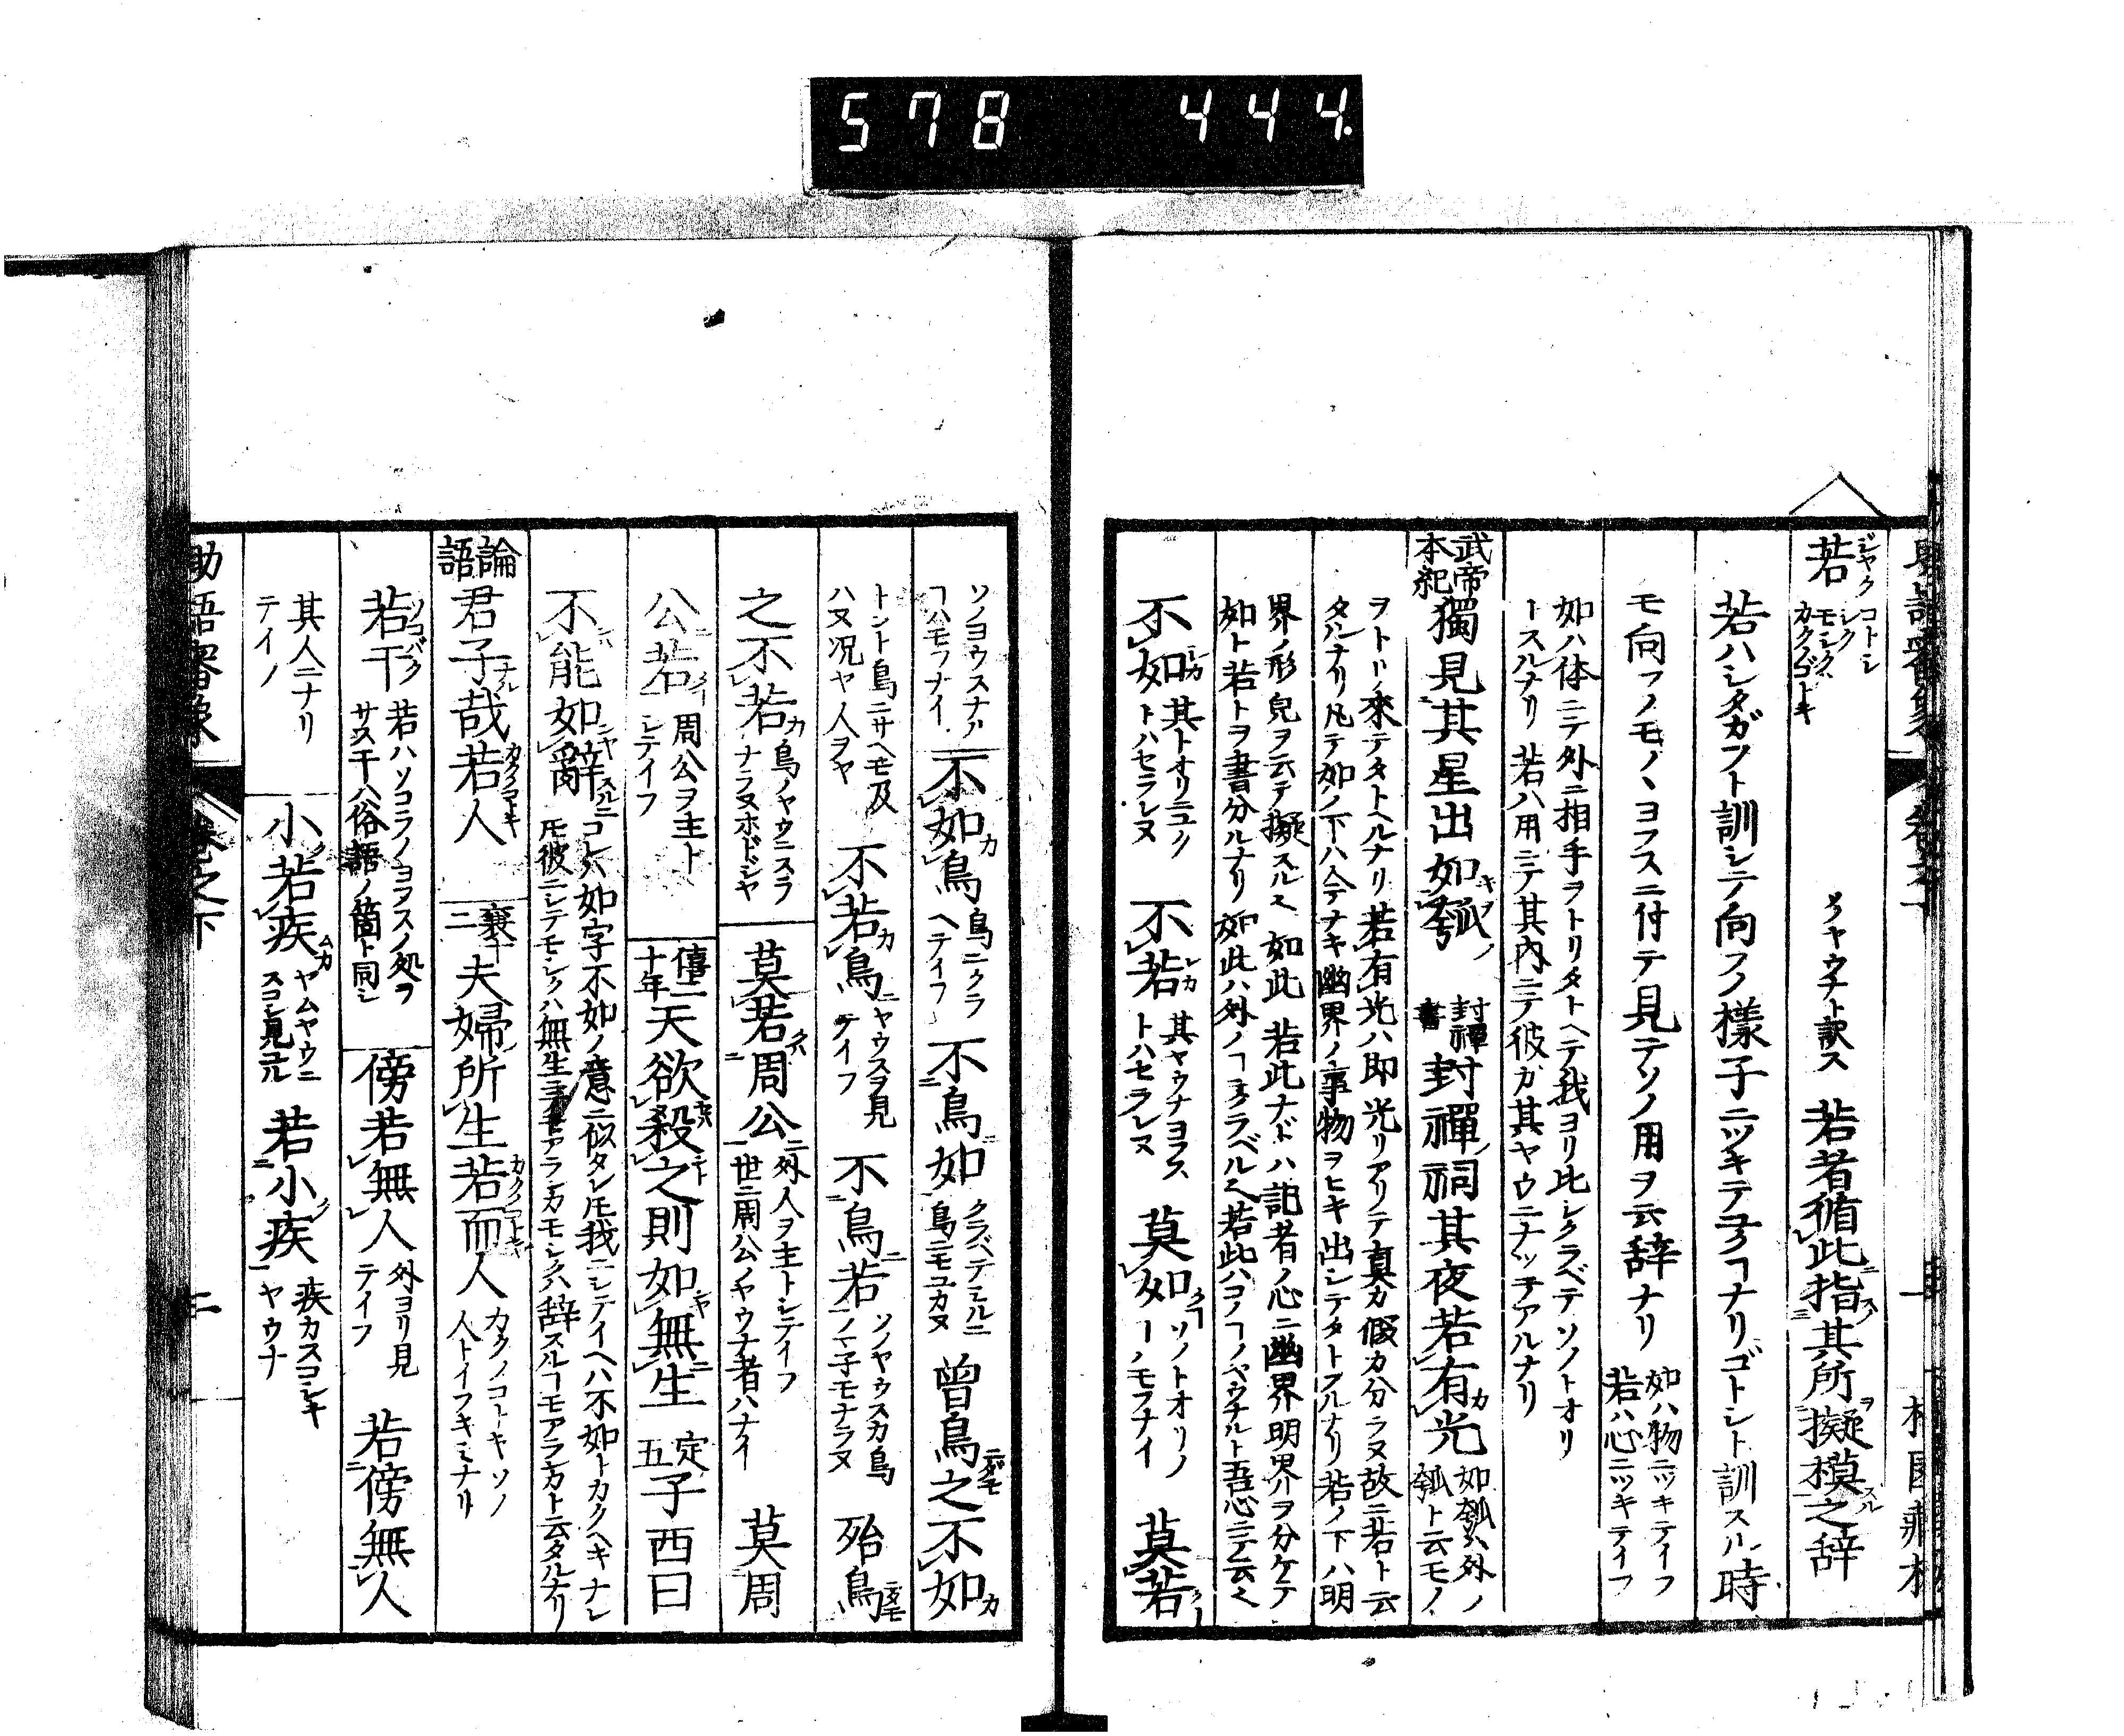 578 444.
若 ジヤク コトシ シク モシクハ カクゴトキ ソヤウナト訳ス 若者循此指其所擬模之辞
若ハシタガフト訓シテ向フノ様子ニツキテ云フヿナリゴトシト訓スル時
モ向フノモノヽヨフスニ付テ見テソノ用ヲ云辞ナリ 如ハ物ニツキテイフ 若ハ心ニツキテイフ
如ハ体ニテ外ニ相手ヲトリタトヘテ我ヨリ比シクラベテソノトオリ
トスルナリ 若ハ用ニテ其内ニテ彼ガ其ヤウニナッテアルナリ
武帝本紀 獨見其星出如瓠 封禪書 封禪祠其夜若有光 如瓠ハ外ノ瓠ト云モノ
ヲトリ来テタトヘルナリ若有光ハ即光リアリテ真カ假カ分ラヌ故ニ若ト云
タルナリ凡テ如ノ下ハ今テナキ幽界ノ事物ヲヒキ出シテタトフルナリ若ノ下ハ明
界ノ形皃ヲ云テ擬スル也 如此 若此ナドハ記者ノ心ニ幽界明界ヲ分ケテ
如ト若トヲ書分ルナリ 如此ハ外ノヿヲクラベル也若此ハコノヿノヤウナルト吾心ニテ云也
不如 其トオリニユク トハセラレヌ 不若 其ヤウナヨフス トハセラレヌ 莫如 ソノトオリノ ーノモフナイ 莫若
ソノヨウスナル ヿハモフナイ 不如鳥 鳥ニクラ ヘテイフ 不鳥如 クラベテミルニ 鳥ニモユカヌ 曾鳥之不如
トント鳥ニサヘモ及 ハヌ况ヤ人ヲヤ 不若鳥 ヤウスヲ見 テイフ 不鳥若 ソノヤウスカ鳥 ノヤ子モナラヌ 殆鳥
之不若 鳥ノヤウニスラ ナラヌホドジヤ 莫若周公 外人ヲ主トシテイフ 世ニ周公ノヤウナ者ハナイ 莫周
公若 周公ヲ主ト シテイフ 僖二十年 天欲殺之則如無生 定五 子西曰
不能如辭 コレハ如字不如ノ意ニ似タレ𪜈我ニシテイヘハ不如トカクヘキナレ
𪜈彼ニシテモシクハ無生コヿアランカモシクハ辞スルヿモアランカト云タルナリ
論語 君子哉若人 襄十二 夫婦所生若而人 カクノコトキソノ 人トイフキミナリ
若干 若ハソコラノヨフスノ処ヲ サス干ハ俗語ノ箇ト同シ 傍若無人 外ヨリ見 テイフ 若傍無人
其人ニナリ テイノ 小若疾 ヤムヤウニ スコシ見ユル 若小疾 疾カスコシキ ヤウナ
助語審象 巻之下 二